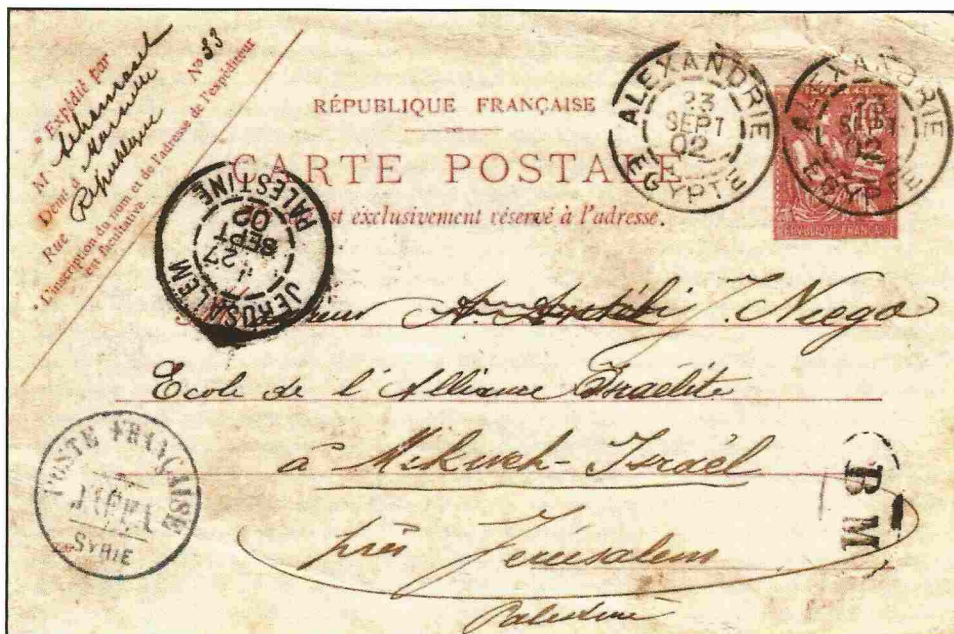 * Expédié par
M
Demt à Marseille
Rue République No 33
* L'inscription du nom et de l'adresse de l'expéditeur
est facultative.
RÉPUBLIQUE FRANÇAISE
CARTE POSTALE
est exclusivement réservé à l'adresse.
ALEXANDRIE
23
SEPT
02
EGYPTE
ALEXANDRIE
SEPT
02
EGYPTE
RÉPUBLIQUE FRANÇAISE
JERUSALEM
27
SEPT
02
PALESTINE
J. Niego
Ecole de l'Alliance Israélite
à Mikweh-Israël
près Jérusalem
Palestine
POSTE FRANÇAISE
JAFFA
SYRIE
BM